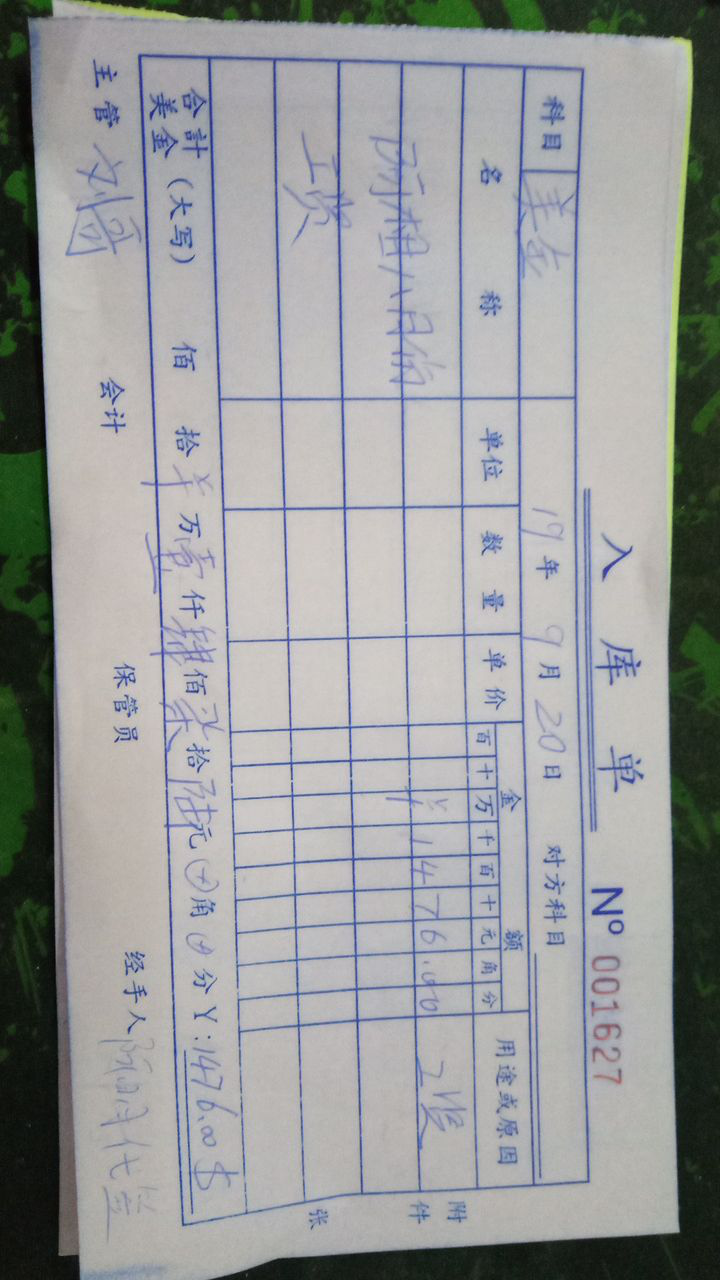 入库单
Nº 001627
科目 美金 19年 9月 20日 对方科目
名称 单位 数量 单价 金额 用途或原因
百 十 万 千 百 十 元 角 分
八月份 ¥1476.00 工资
工资
合計 美金 (大写) 佰 拾 ¥ 万 壹 仟 肆 佰 柒 拾 陆 元 角 分 Y:1476.00 $
附件 张
主管 刘哥 会计 保管员 经手人 代签